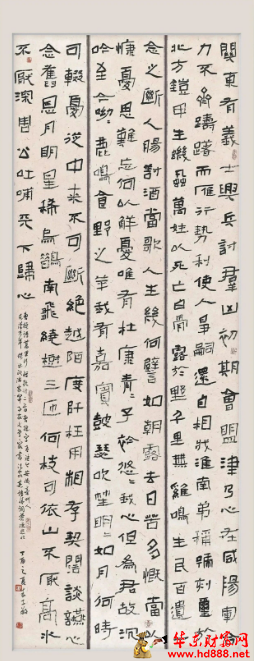 關東有義士興兵討群凶初期會盟津乃心在咸陽軍合
力不齊躊躇而雁行勢利使人爭嗣還自相戕淮南弟稱號刻璽於
北方鎧甲生蟣虱萬姓以死亡白骨露於野千里無雞鳴生民百遺一
念之斷人腸對酒當歌人生幾何譬如朝露去日苦多慨當以
慷憂思難忘何以解憂唯有杜康青青子衿悠悠我心但為君故沉
吟至今呦呦鹿鳴食野之苹我有嘉賓鼓瑟吹笙明明如月何時
可掇憂從中來不可斷絕越陌度阡枉用相存契闊談讌心
念舊恩月明星稀烏鵲南飛繞樹三匝何枝可依山不厭高水
不厭深周公吐哺天下歸心
华东财富网
www.hd888.net